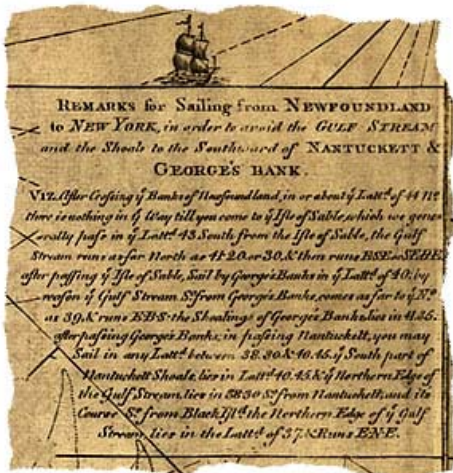 REMARKS for Sailing from NEWFOUNDLAND
to NEW YORK, in order to avoid the GULF STREAM
and the Shoals to the Southward of NANTUCKETT &
GEORGE'S BANK.
VIZ. After Crossing ẏ Banks of Newfoundland, in or about ẏ Lattd. of 44 No.
there is nothing in ẏ Way till you come to ẏ Isle of Sable, which we gene-
rally pass in ẏ Lattd. 43. South from the Isle of Sable, the Gulf
Stream runs as far North as 41.20. or 30, & then runs ESE or SEBE,
after passing ẏ Isle of Sable, Sail by George's Banks in ẏ Lattd. of 40; by
reason ẏ Gulf Stream So. from George's Banks, comes as far to ẏ No.
as 39, & runs EBS. the Shoalings of George's Banks lies in 41.35.
after passing George's Banks; in passing Nantuckett, you may
Sail in any Lattd. between 38.30 & 40.45. ẏ South part of
Nantuckett Shoals, lies in Lattd. 40.45. & ẏ Northern Edge of
the Gulf Stream, lies in 38.30 So. from Nantuckett, and its
Course So. from Black Isld. the Northern Edge of ẏ Gulf
Stream, lies in the Lattd. of 37, & Runs ENE.